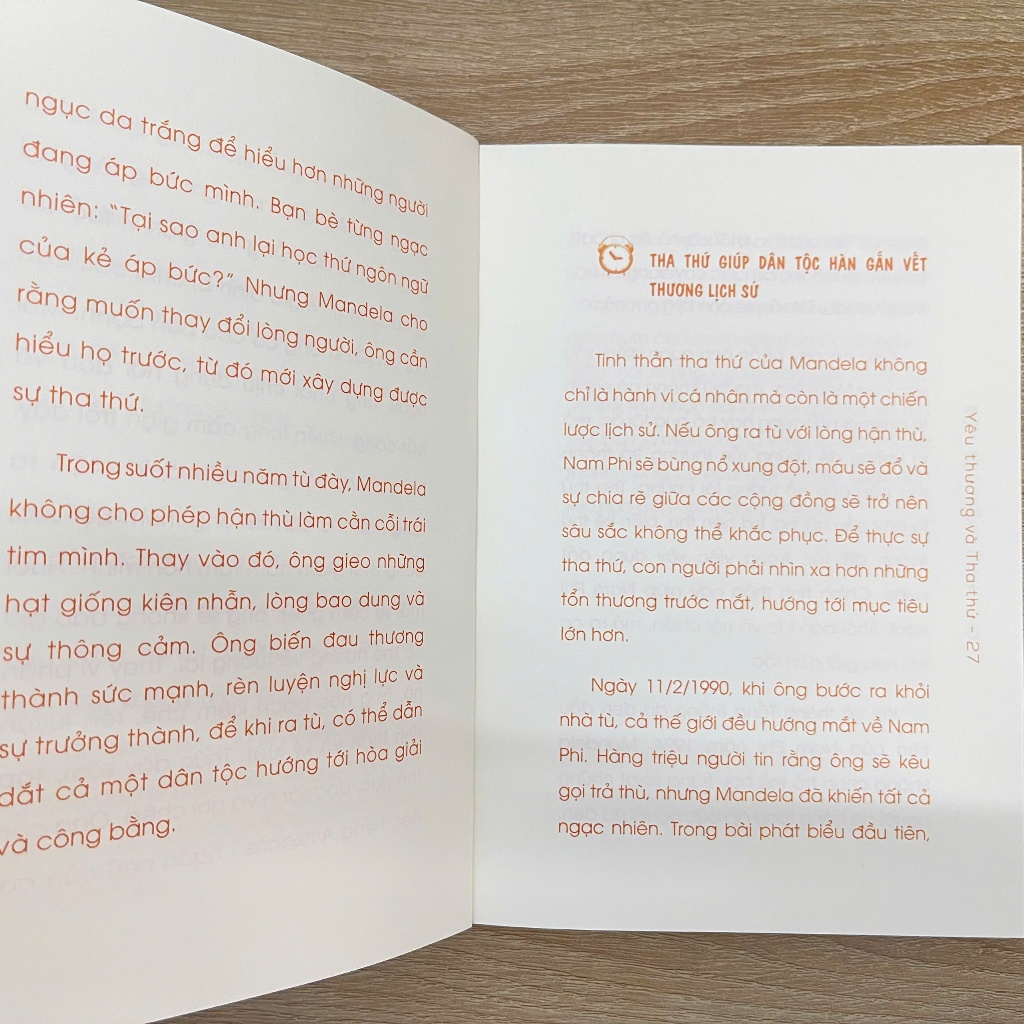 ngục da trắng để hiểu hơn những người
đang áp bức mình. Bạn bè từng ngạc
nhiên: “Tại sao anh lại học thứ ngôn ngữ
của kẻ áp bức?” Nhưng Mandela cho
rằng muốn thay đổi lòng người, ông cần
hiểu họ trước, từ đó mới xây dựng được
sự tha thứ.
Trong suốt nhiều năm tù đày, Mandela
không cho phép hận thù làm cằn cỗi trái
tim mình. Thay vào đó, ông gieo những
hạt giống kiên nhẫn, lòng bao dung và
sự thông cảm. Ông biến đau thương
thành sức mạnh, rèn luyện nghị lực và
sự trưởng thành, để khi ra tù, có thể dẫn
dắt cả một dân tộc hướng tới hòa giải
và công bằng.
THA THỨ GIÚP DÂN TỘC HÀN GẮN VẾT
THƯƠNG LỊCH SỬ
Tinh thần tha thứ của Mandela không
chỉ là hành vi cá nhân mà còn là một chiến
lược lịch sử. Nếu ông ra tù với lòng hận thù,
Nam Phi sẽ bùng nổ xung đột, máu sẽ đổ và
sự chia rẽ giữa các cộng đồng sẽ trở nên
sâu sắc không thể khắc phục. Để thực sự
tha thứ, con người phải nhìn xa hơn những
tổn thương trước mắt, hướng tới mục tiêu
lớn hơn.
Ngày 11/2/1990, khi ông bước ra khỏi
nhà tù, cả thế giới đều hướng mắt về Nam
Phi. Hàng triệu người tin rằng ông sẽ kêu
gọi trả thù, nhưng Mandela đã khiến tất cả
ngạc nhiên. Trong bài phát biểu đầu tiên,
Yêu thương và Tha thứ - 27